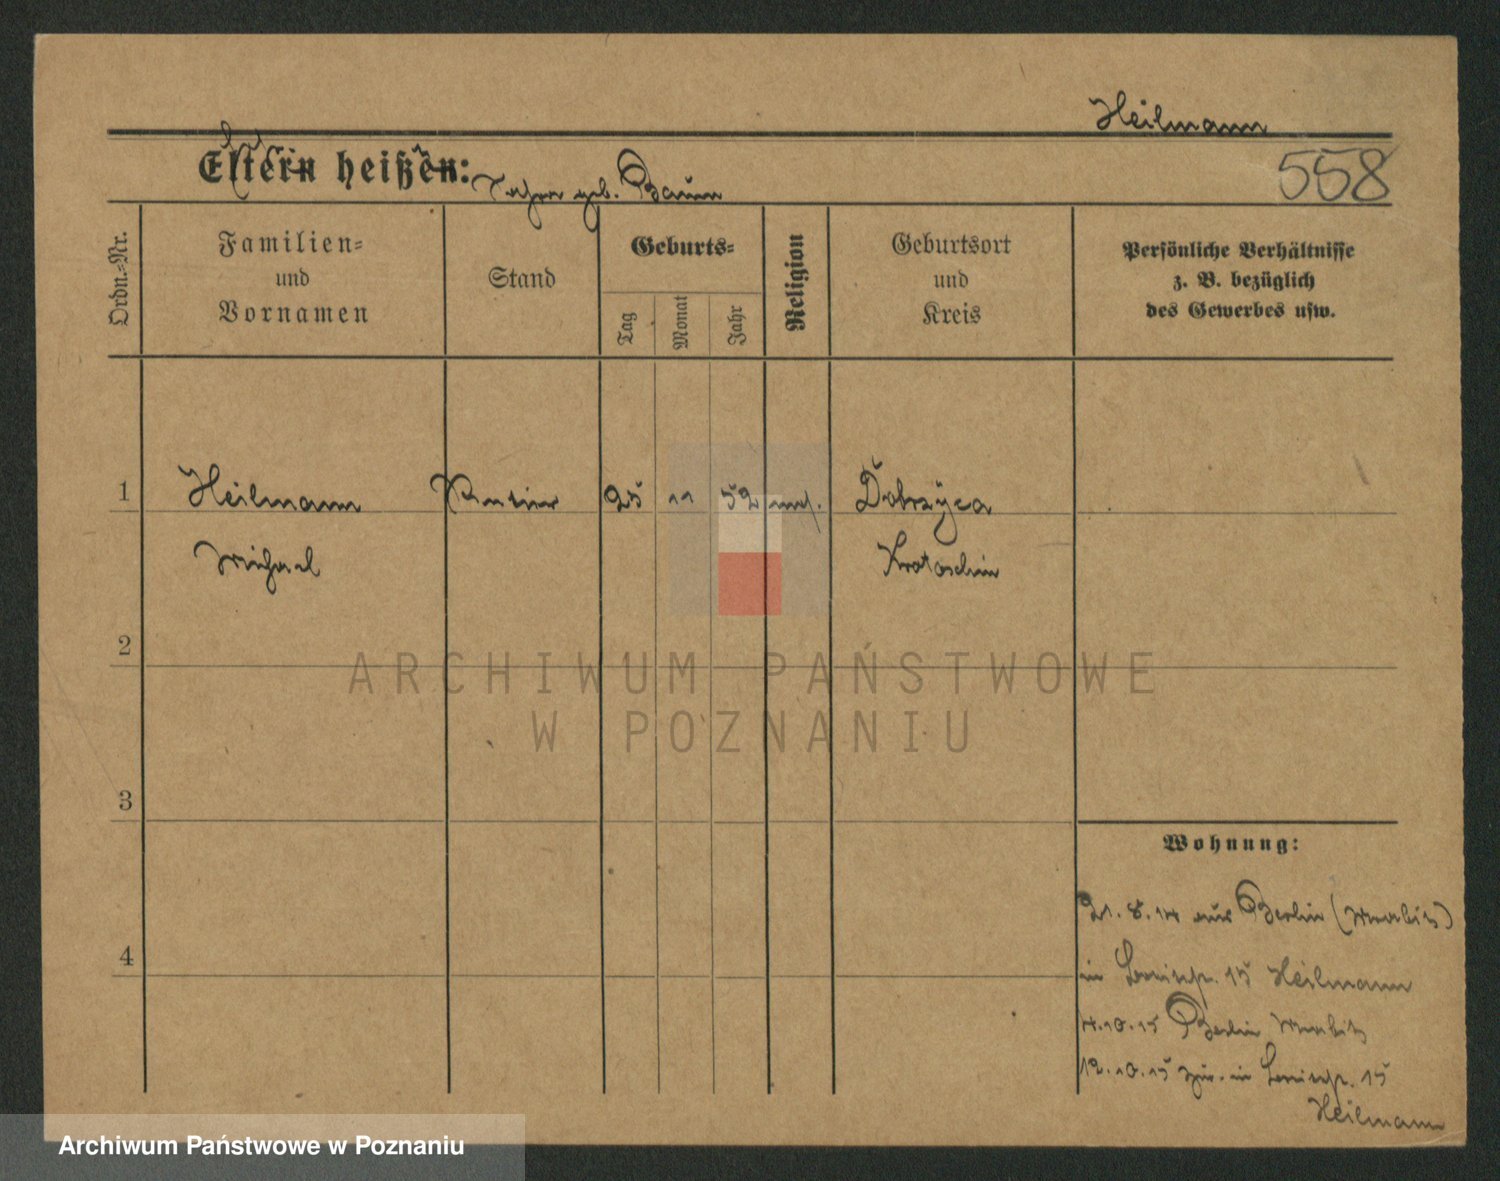 Heilmann
Eltern heißen: geb. Baum
558
Ordn.-Nr.
Familien-
und
Vornamen
Stand
Geburts-
Tag
Monat
Jahr
Religion
Geburtsort
und
Kreis
Persönliche Verhältnisse
z. B. bezüglich
des Gewerbes usw.
1
Heilmann
Rentier
25
11
52
mos.
Dobrzyca
Michael
Krotoschin
2
3
4
Wohnung:
21. 8. 14 aus Berlin (Moabit)
in Louisenstr. 15 Heilmann
4.10.15 Berlin Moabit
12.10.15 zur. in Louisenstr. 15
Heilmann
ARCHIWUM PAŃSTWOWE
W POZNANIU
Archiwum Państwowe w Poznaniu